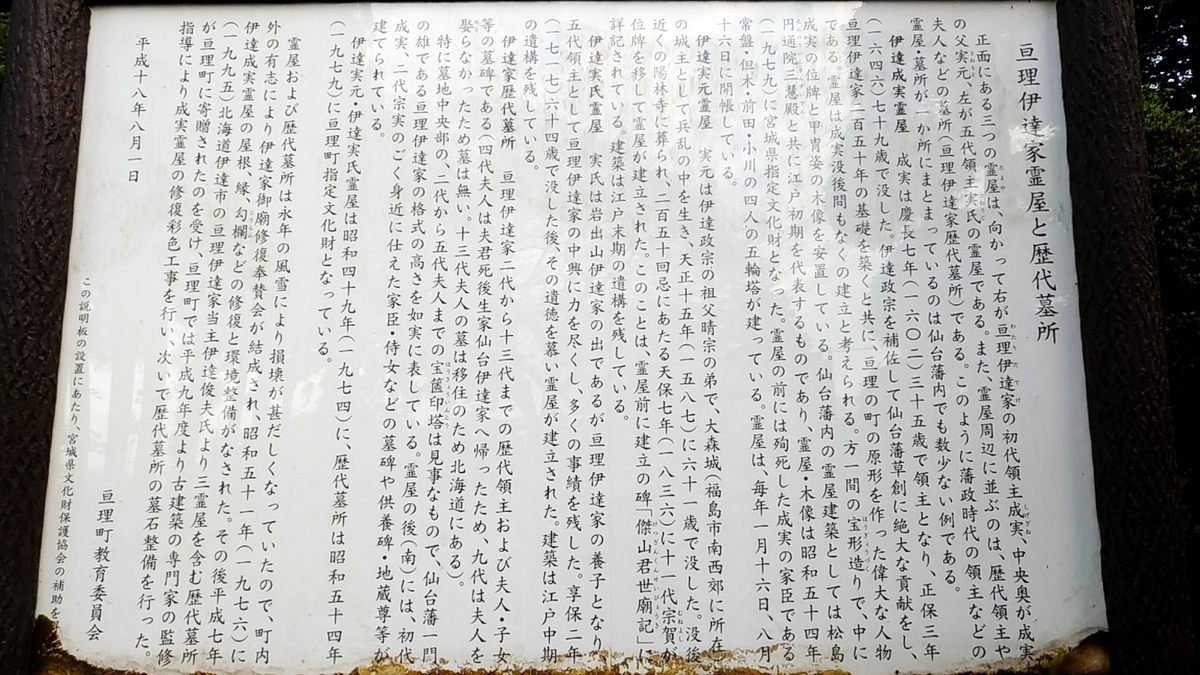 亘理伊達家霊屋と歴代墓所
正面にある三つの霊屋は、向かって右が亘理伊達家の初代領主成実、中央奥が成実
の父実元、左が五代領主実氏の霊屋である。また、霊屋周辺に並ぶのは、歴代領主や
夫人などの墓所（亘理伊達家歴代墓所）である。このように藩政時代の領主などの
霊屋・墓所が一か所にまとまっているのは仙台藩内でも数少ない例である。
伊達成実霊屋 成実は慶長七年（一六〇二）三十五歳で領主となり、正保三年
（一六四六）七十九歳で没した。伊達政宗を補佐して仙台藩草創に絶大な貢献をし、
亘理伊達家二百五十年の基礎を築くと共に、亘理の町の原形を作った偉大な人物
である。霊屋は成実没後間もなくの建立と考えられる。方一間の宝形造りで、中に
成実の位牌と甲冑姿の木像を安置している。仙台藩内の霊屋建築としては松島
円通院三慧殿と共に江戸初期を代表するものであり、霊屋・木像は昭和五十四年
（一九七九）に宮城県指定文化財となった。霊屋の前には殉死した成実の家臣である
常盤・但木・前田・小川の四人の五輪塔が建っている。霊屋は、毎年一月十六日、八月
十六日に開帳している。
伊達実元霊屋 実元は伊達政宗の祖父晴宗の弟で、大森城（福島市南西郊に所在）
の城主として兵乱の中を生き、天正十五年（一五八七）に六十一歳で没した。没後
近くの陽林寺に葬られ、二百五十回忌にあたる天保七年（一八三六）に十一代宗賀が
位牌を移して霊屋が建立された。このことは、霊屋前に建立の碑「傑山君世廟記」に
詳記されている。建築は江戸末期の遺構を残している。
伊達実氏霊屋 実氏は岩出山伊達家の出であるが亘理伊達家の養子となり、
五代領主として亘理伊達家の中興に力を尽くし、多くの事績を残した。享保二年
（一七一七）六十四歳で没した後、その遺徳を慕い霊屋が建立された。建築は江戸中期
の遺構を残している。
伊達家歴代墓所 亘理伊達家二代から十三代までの歴代領主および夫人・子女
等の墓碑である（四代夫人は夫君死後生家仙台伊達家へ帰ったため、九代は夫人を
娶らなかったため墓は無い。十三代夫人の墓は移住のため北海道にある）。
特に墓地中央部の、二代から五代夫人までの宝篋印塔は見事なもので、仙台藩一門
の雄である亘理伊達家の格式の高さを如実に表している。霊屋の後（南）には、初代
成実、二代宗実のごく身近に仕えた家臣・侍女などの墓碑や供養碑・地蔵尊等が
建てられている。
伊達実元・伊達実氏霊屋は昭和四十九年（一九七四）に、歴代墓所は昭和五十四年
（一九七九）に亘理町指定文化財となっている。
霊屋および歴代墓所は永年の風雪により損壊が甚だしくなっていたので、町内
外の有志により伊達家御廟修復奉賛会が結成され、昭和五十一年（一九七六）に
伊達成実霊屋の屋根、縁、勾欄などの修復と環境整備がなされた。その後平成七年
（一九九五）北海道伊達市の亘理伊達家当主伊達俊夫氏より三霊屋を含む歴代墓所
が亘理町に寄贈されたのを受け、亘理町では平成九年度より古建築の専門家の監修
指導により成実霊屋の修復彩色工事を行い、次いで歴代墓所の墓石整備を行った。
平成十八年八月一日
亘理町教育委員会
この説明板の設置にあたり、宮城県文化財保護協会の補助を